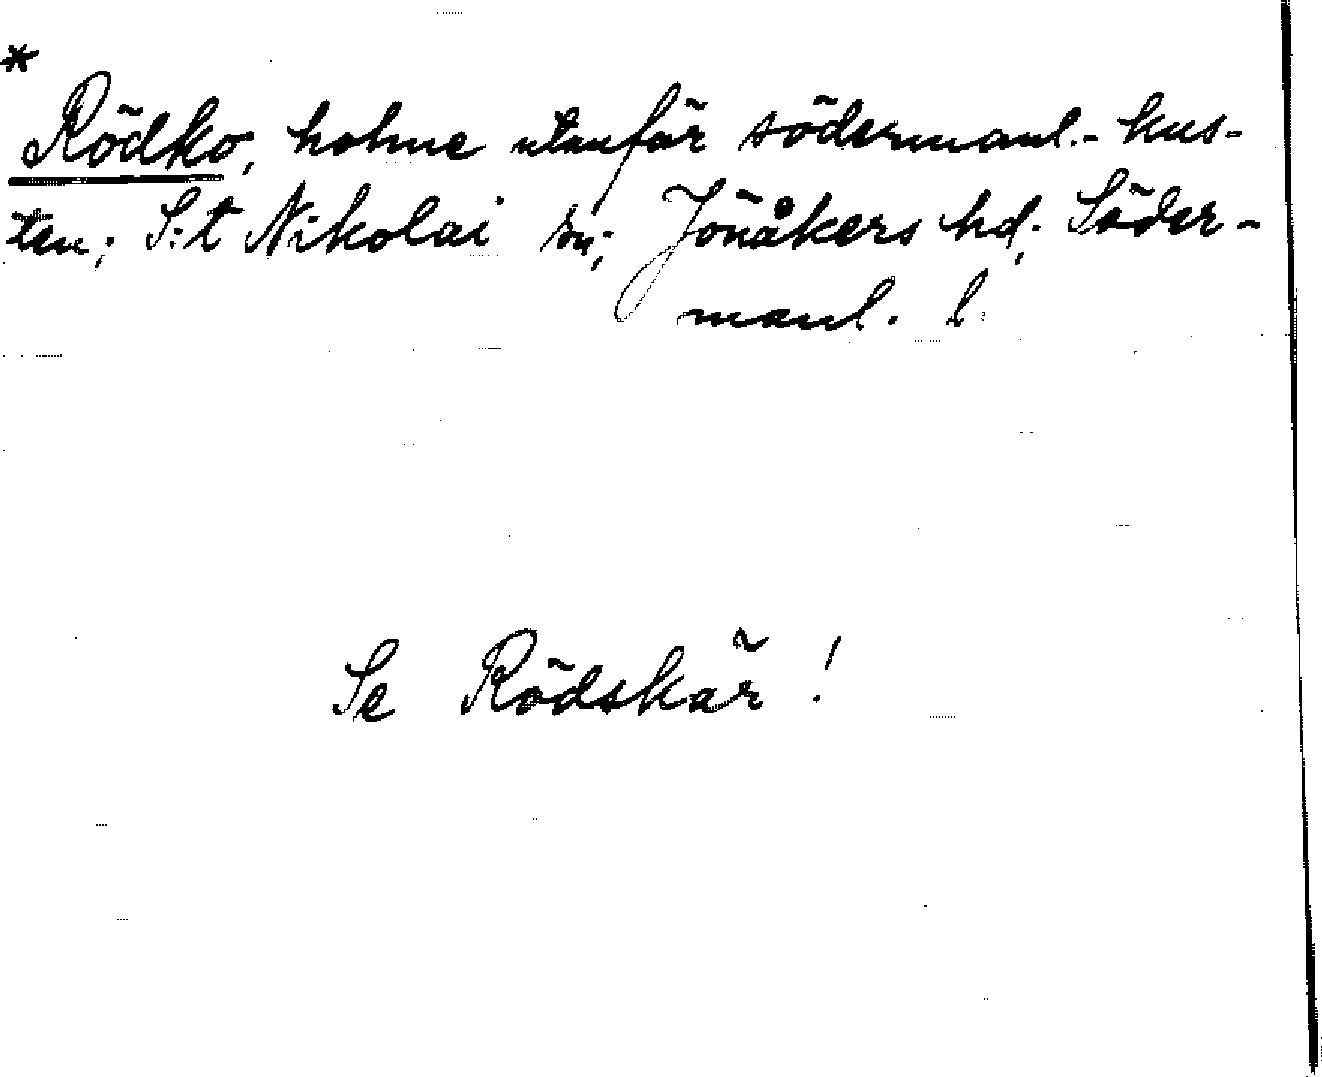 *
Rödko, holme utanför södermanl.- kus-
ten; S:t Nikolai sn; Jönåkers hd; Söder-
manl. l.
Se Rödskär!